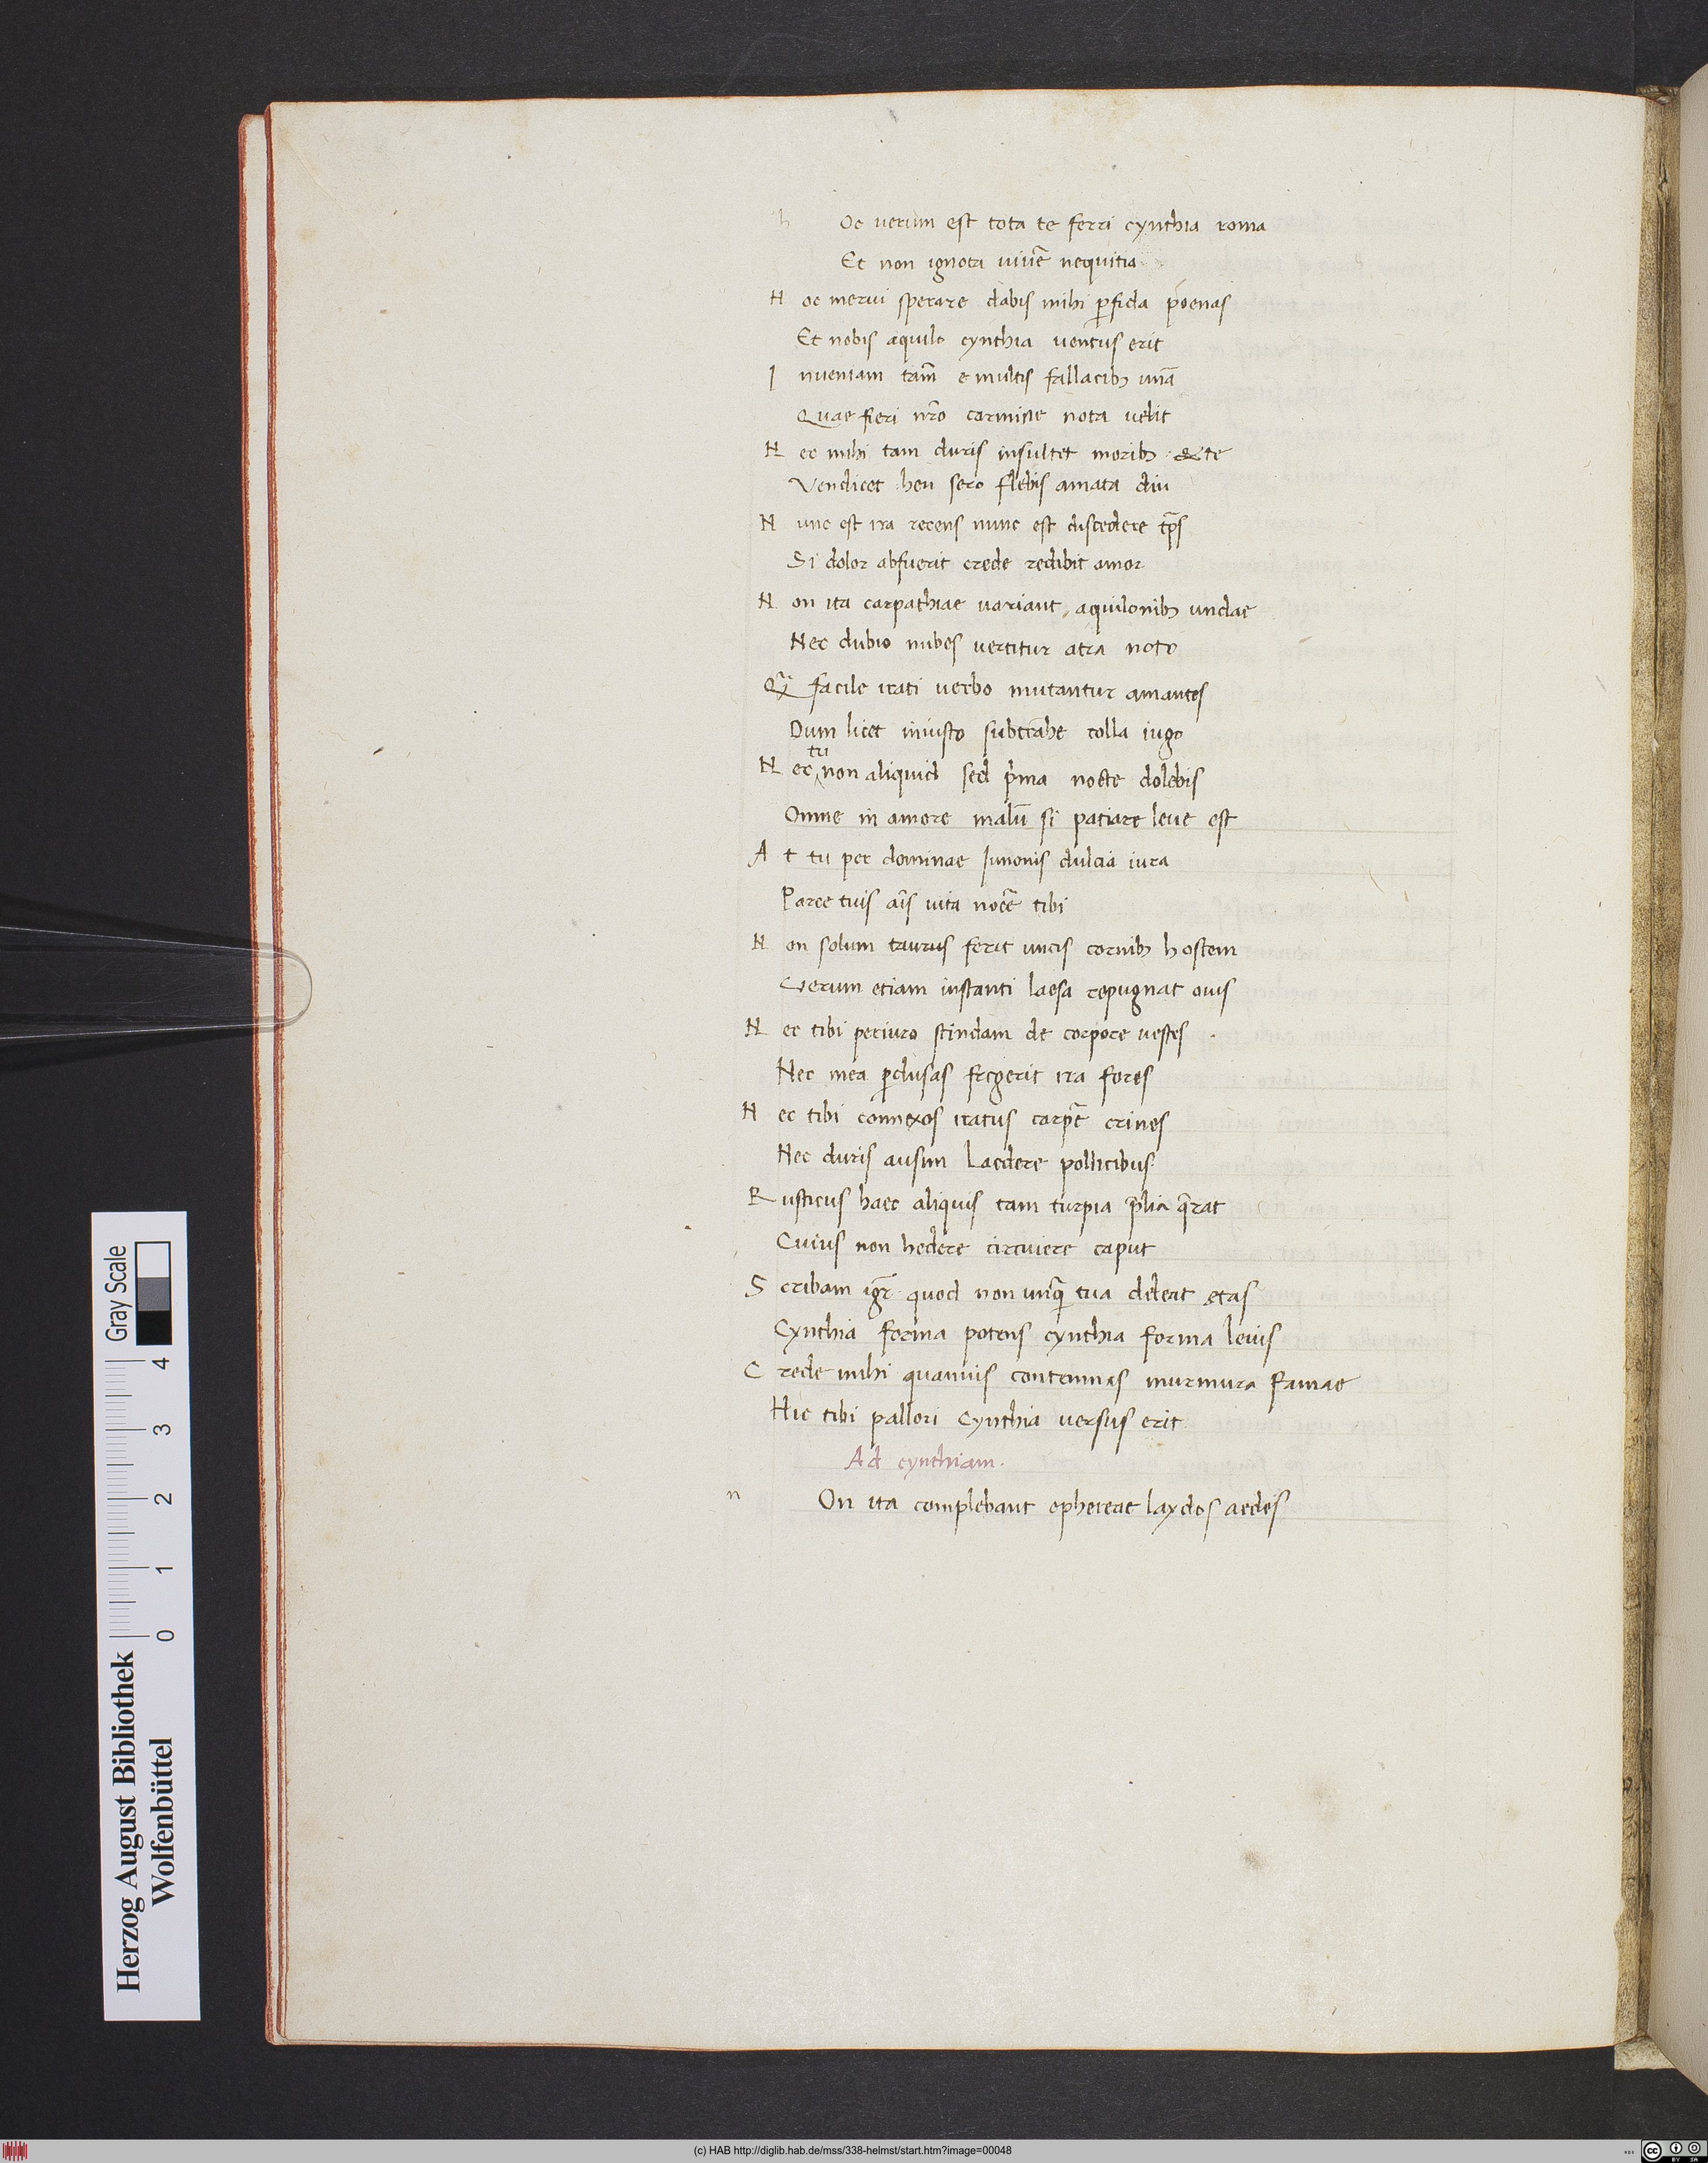 h Oc uerum est tota te ferri cynthia roma
Et non ignota uiuē̃ nequitia
N oc merui sperare dabis mihi ꝑfida poenas
Et nobis aquilo cynthia uentus erit
I nueniam tam̃ e multis fallacibꝫ unā
Quae fieri nr̃o carmine nota uelit
N ec mihi tam duris insultet moribꝫ & te
Vendicet heu sero flebis amata diu
N unc est ira recens nunc est discedere tp̃s
Si dolor abfuerit crede redibit amor
N on ita carpathiae uariant aquilonibꝫ undae
Nec dubio nubes uertitur atra noto
Qᷓ facile irati uerbo mutantur amantes
Dum licet iniusto subtrahe colla iugo
N ec tu non aliquid sed p̃ma nocte dolebis
Omne in amore malū si patiare leue est
A t tu per dominae Iunonis dulcia iura
Parce tuis ais̃ uita nocē̃ tibi
N on solum taurus ferit uncis cornibꝫ hostem
Verum etiam instanti laesa repugnat ouis
N ec tibi periuro scindam de corpore uestes
Nec mea p̃clusas fregerit ira fores
N ec tibi connexos iratus carpē̃ crines
Nec duris ausim Laedere pollicibus
R usticus haec aliquis tam turpia p̃lia q̃rat
Cuius non hedere circuiere caput
S cribam igr̃ quod non unqᷓ tua deleat ętas
Cynthia forma potens cynthia forma leuis
C rede mihi quamuis contemnas murmura famae
Hic tibi pallori Cynthia uersus erit
Ad cynthiam.
n On ita complebant ephereae laydos aedes
Gray Scale
4 3 2 1 0
Herzog August Bibliothek
Wolfenbüttel
(c) HAB http://diglib.hab.de/mss/338-helmst/start.htm?image=00048